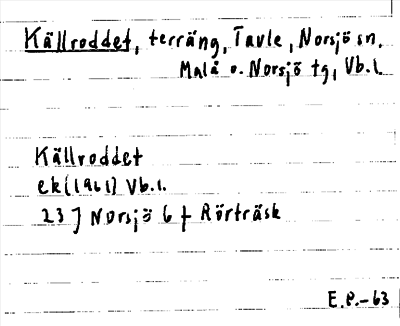 Källroddet, terräng, Tavle, Norsjö sn.
Malå o. Norsjö tg, Vb. l.
Källroddet
ek (1961) Vb. l.
23 J Norsjö 6 f Rörträsk
E.P.-63